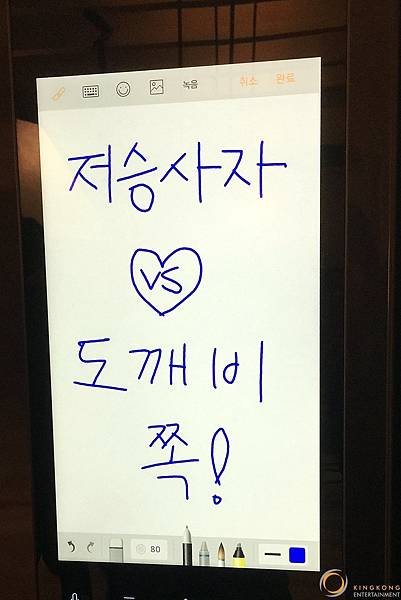 녹음 취소 완료
저승사자
vs
도깨비
쪽!
80
KINGKONG
ENTERTAINMENT